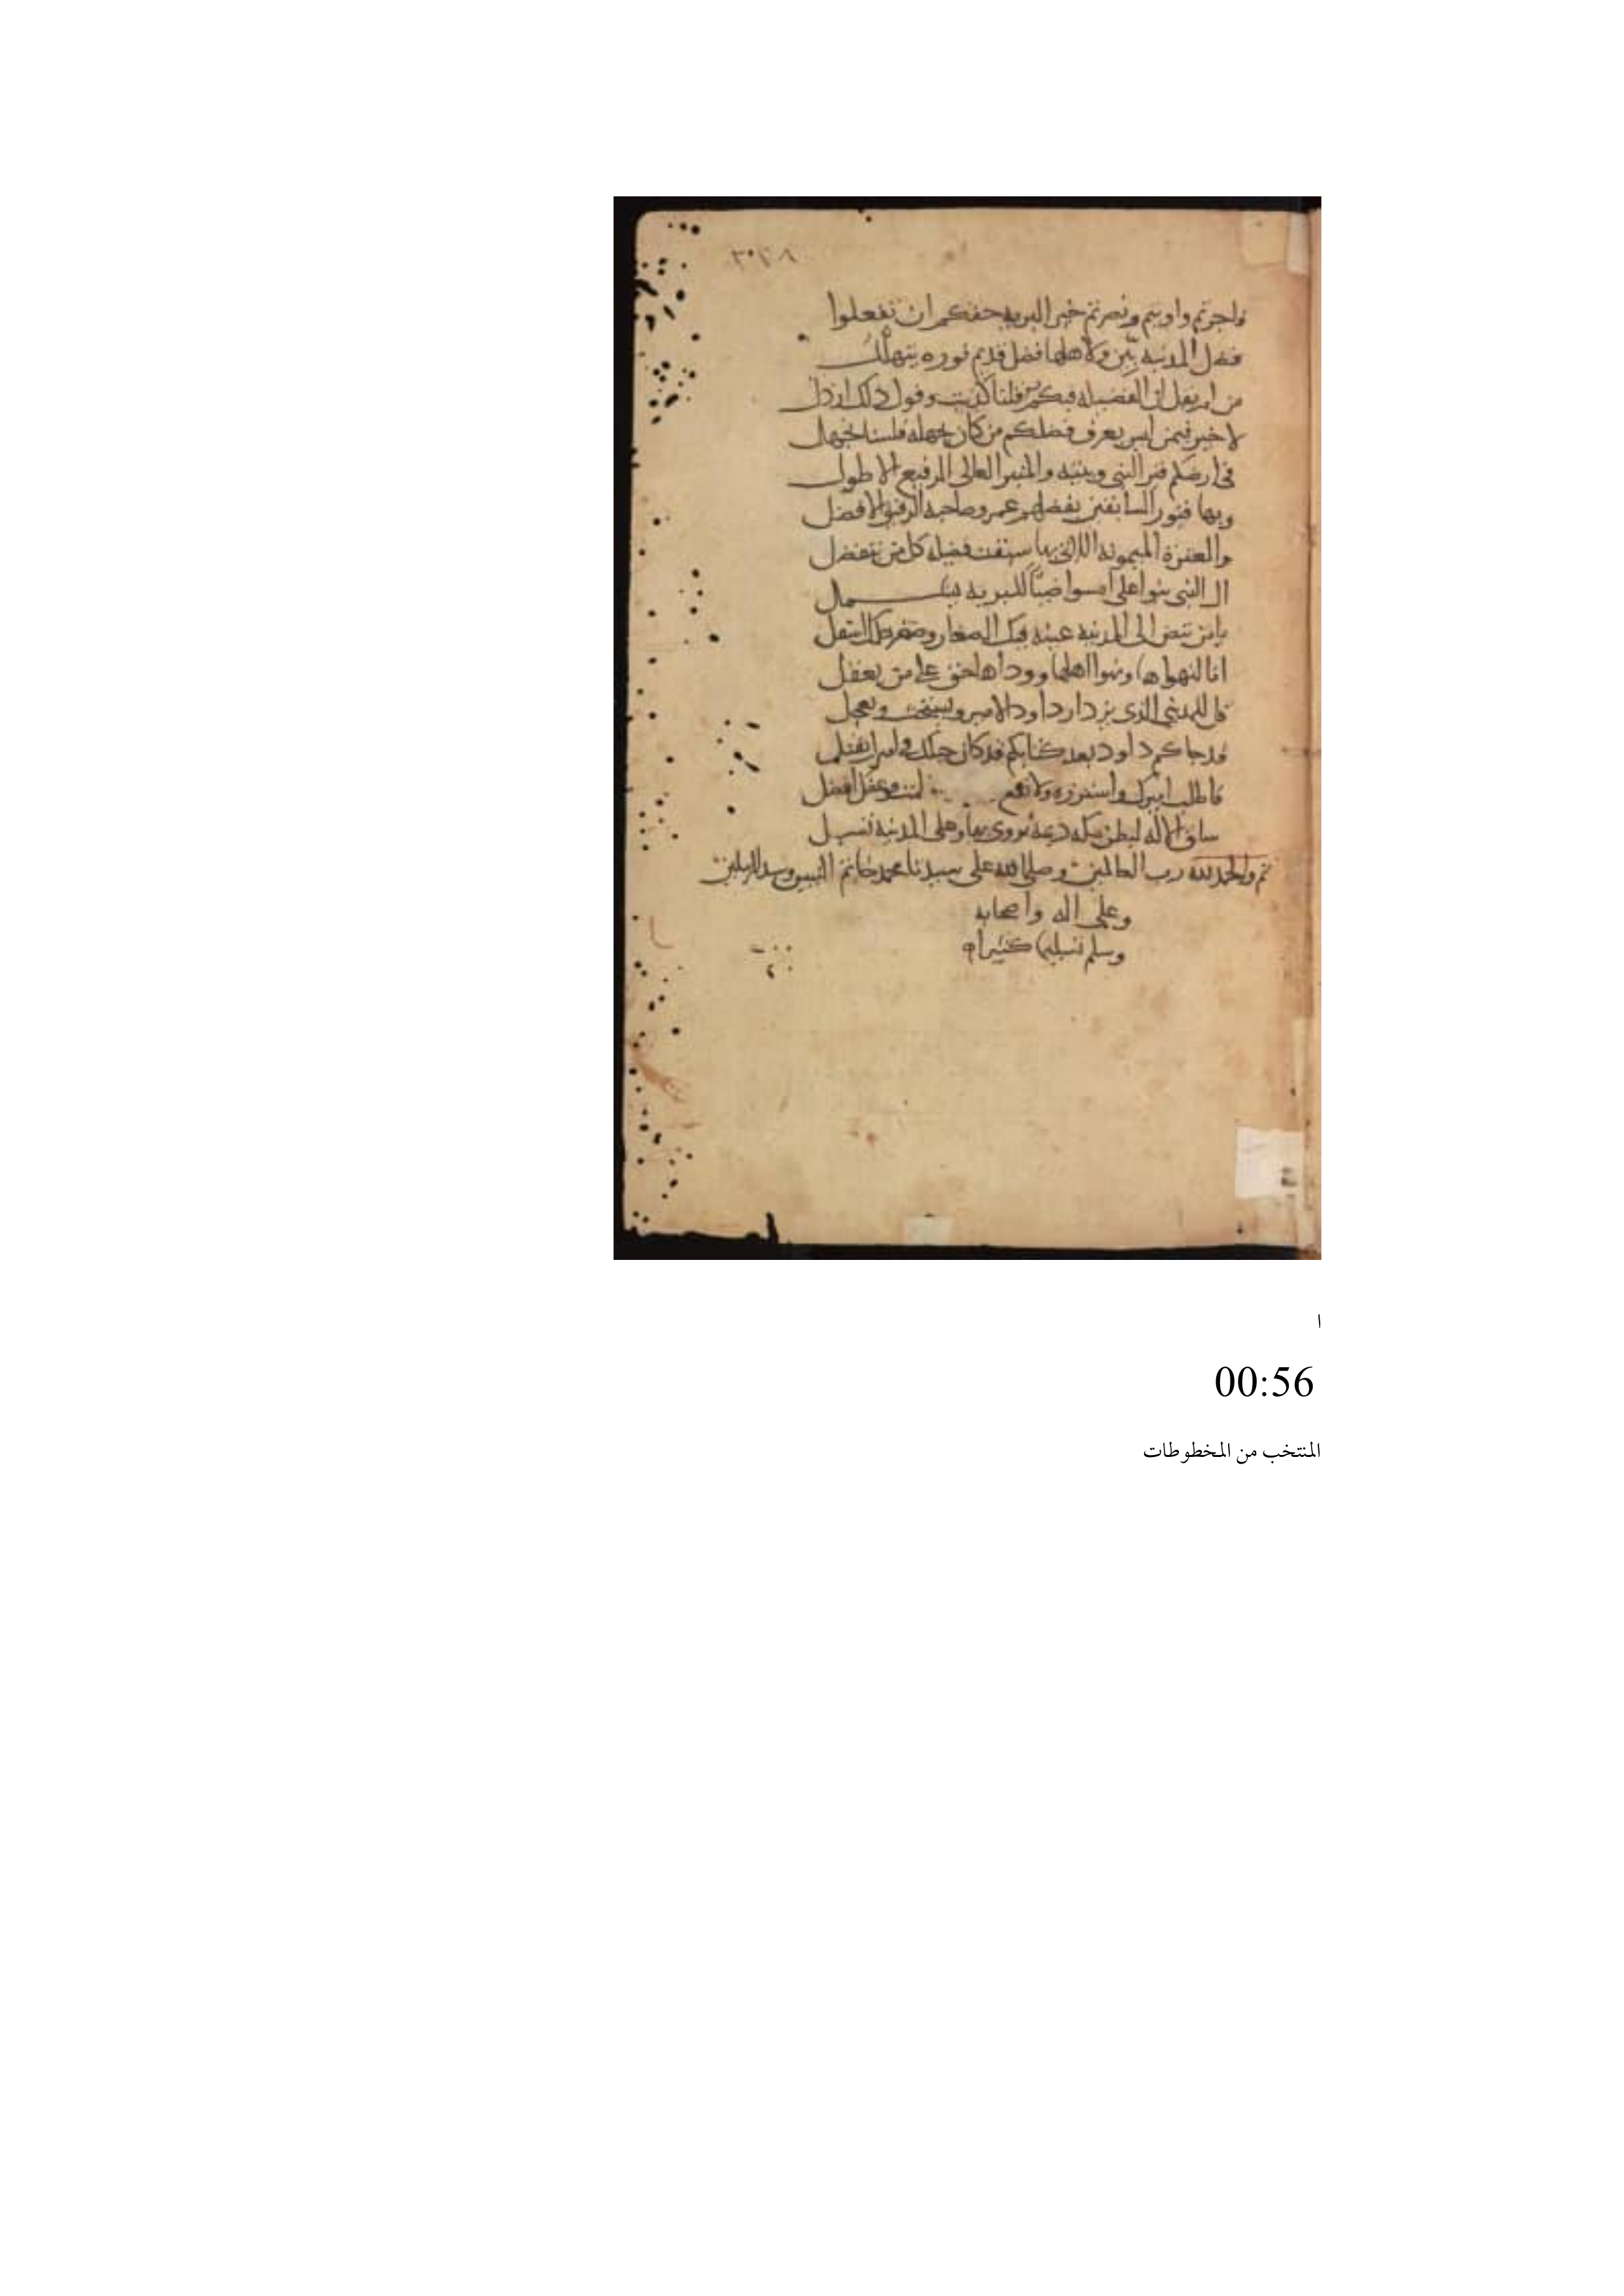 واجرتم واويتم ونصرتم خير البريه حقكم ان تفعلوا
فضل المدينه بين ولاهلها فضل قديم نوره يتهلل
من لم يقل ان الفضيله فيكم قلنا كذبت وقول ذلك ارذل
لا خير فيمن ليس يعرف فضلكم من كان يجهله فلسنا نجهل
في ارضكم قبر النبي وبيته والمنبر العالي الرفيع الاطول
وبها قبور السابقين بفضلهم عمر وصاحبه الرفيق الافضل
والعترة الميمونه اللاتي بها سبقت فضيله كل من يتفضل
ال النبي بنوا علي امسوا ضياً للبريه يشمل
يا من تبض الى المدينه عينه فيك الصغار وصعر خدك اسفل
انا لنهواها ونهوا اهلها وودادها حق على من يعقل
قل للمديني الذي يزدار داود الامير ويستحث ويعجل
قد جاكم داود بعد كتابكم قد كان حبلك في امير يفتل
فاطلب اميرك واستزره ولا تقع
ساق الاله لبطن مكه ديمة تروى بها وعلى المدينه تسبل
تم والحمد لله رب العالمين وصلى الله على سيدنا محمد خاتم النبيين وسيد المرسلين
وعلى اله واصحابه
وسلم تسليما كثيرا
ا
00:56
المنتخب من المخطوطات